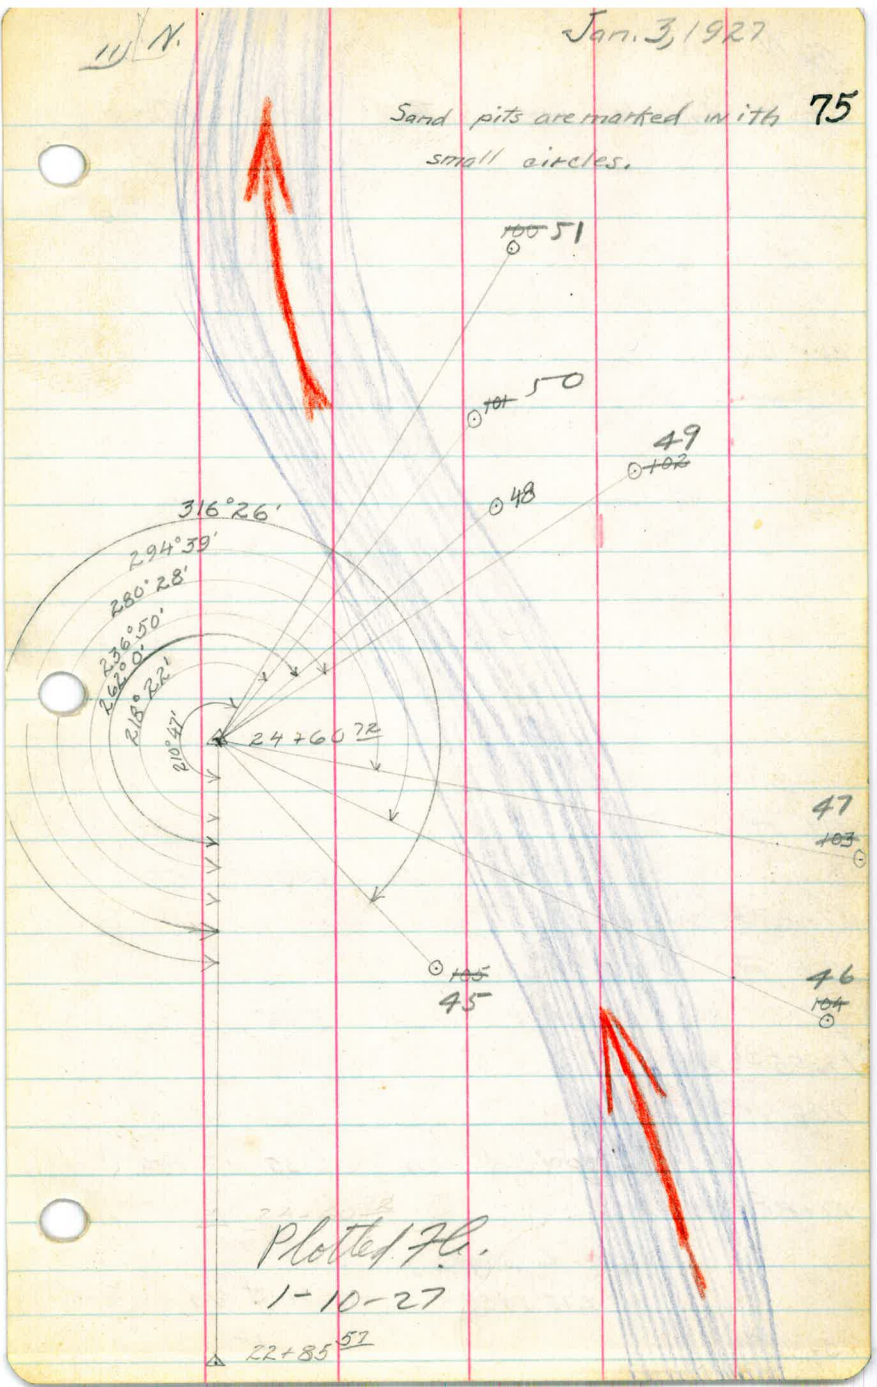 N.
Jan. 3, 1927
75
Sand pits are marked with
small circles.
100 51
101 50
49
102
48
316°26'
294°39'
280°28'
236°50'
262°0'
218°22'
210°47'
24+60 72
47
103
46
104
105
45
Plotted
1-10-27
22+85 57